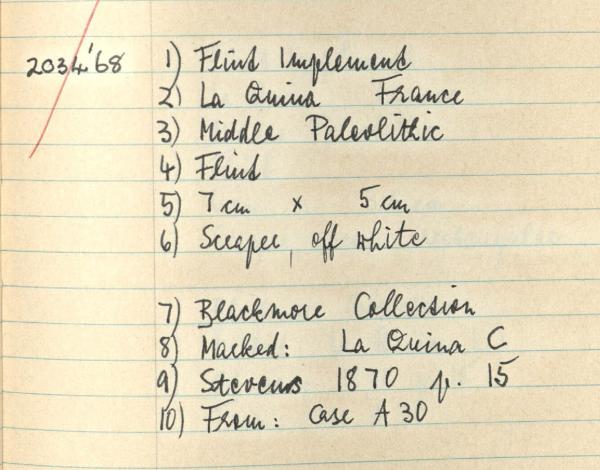 2034'68 1) Flint Implement
2) La Quina France
3) Middle Paleolithic
4) Flint
5) 7 cm x 5 cm
6) Scraper, off white
7) Blackmore Collection
8) Marked: La Quina C
9) Stevens 1870 p. 15
10) From: Case A 30